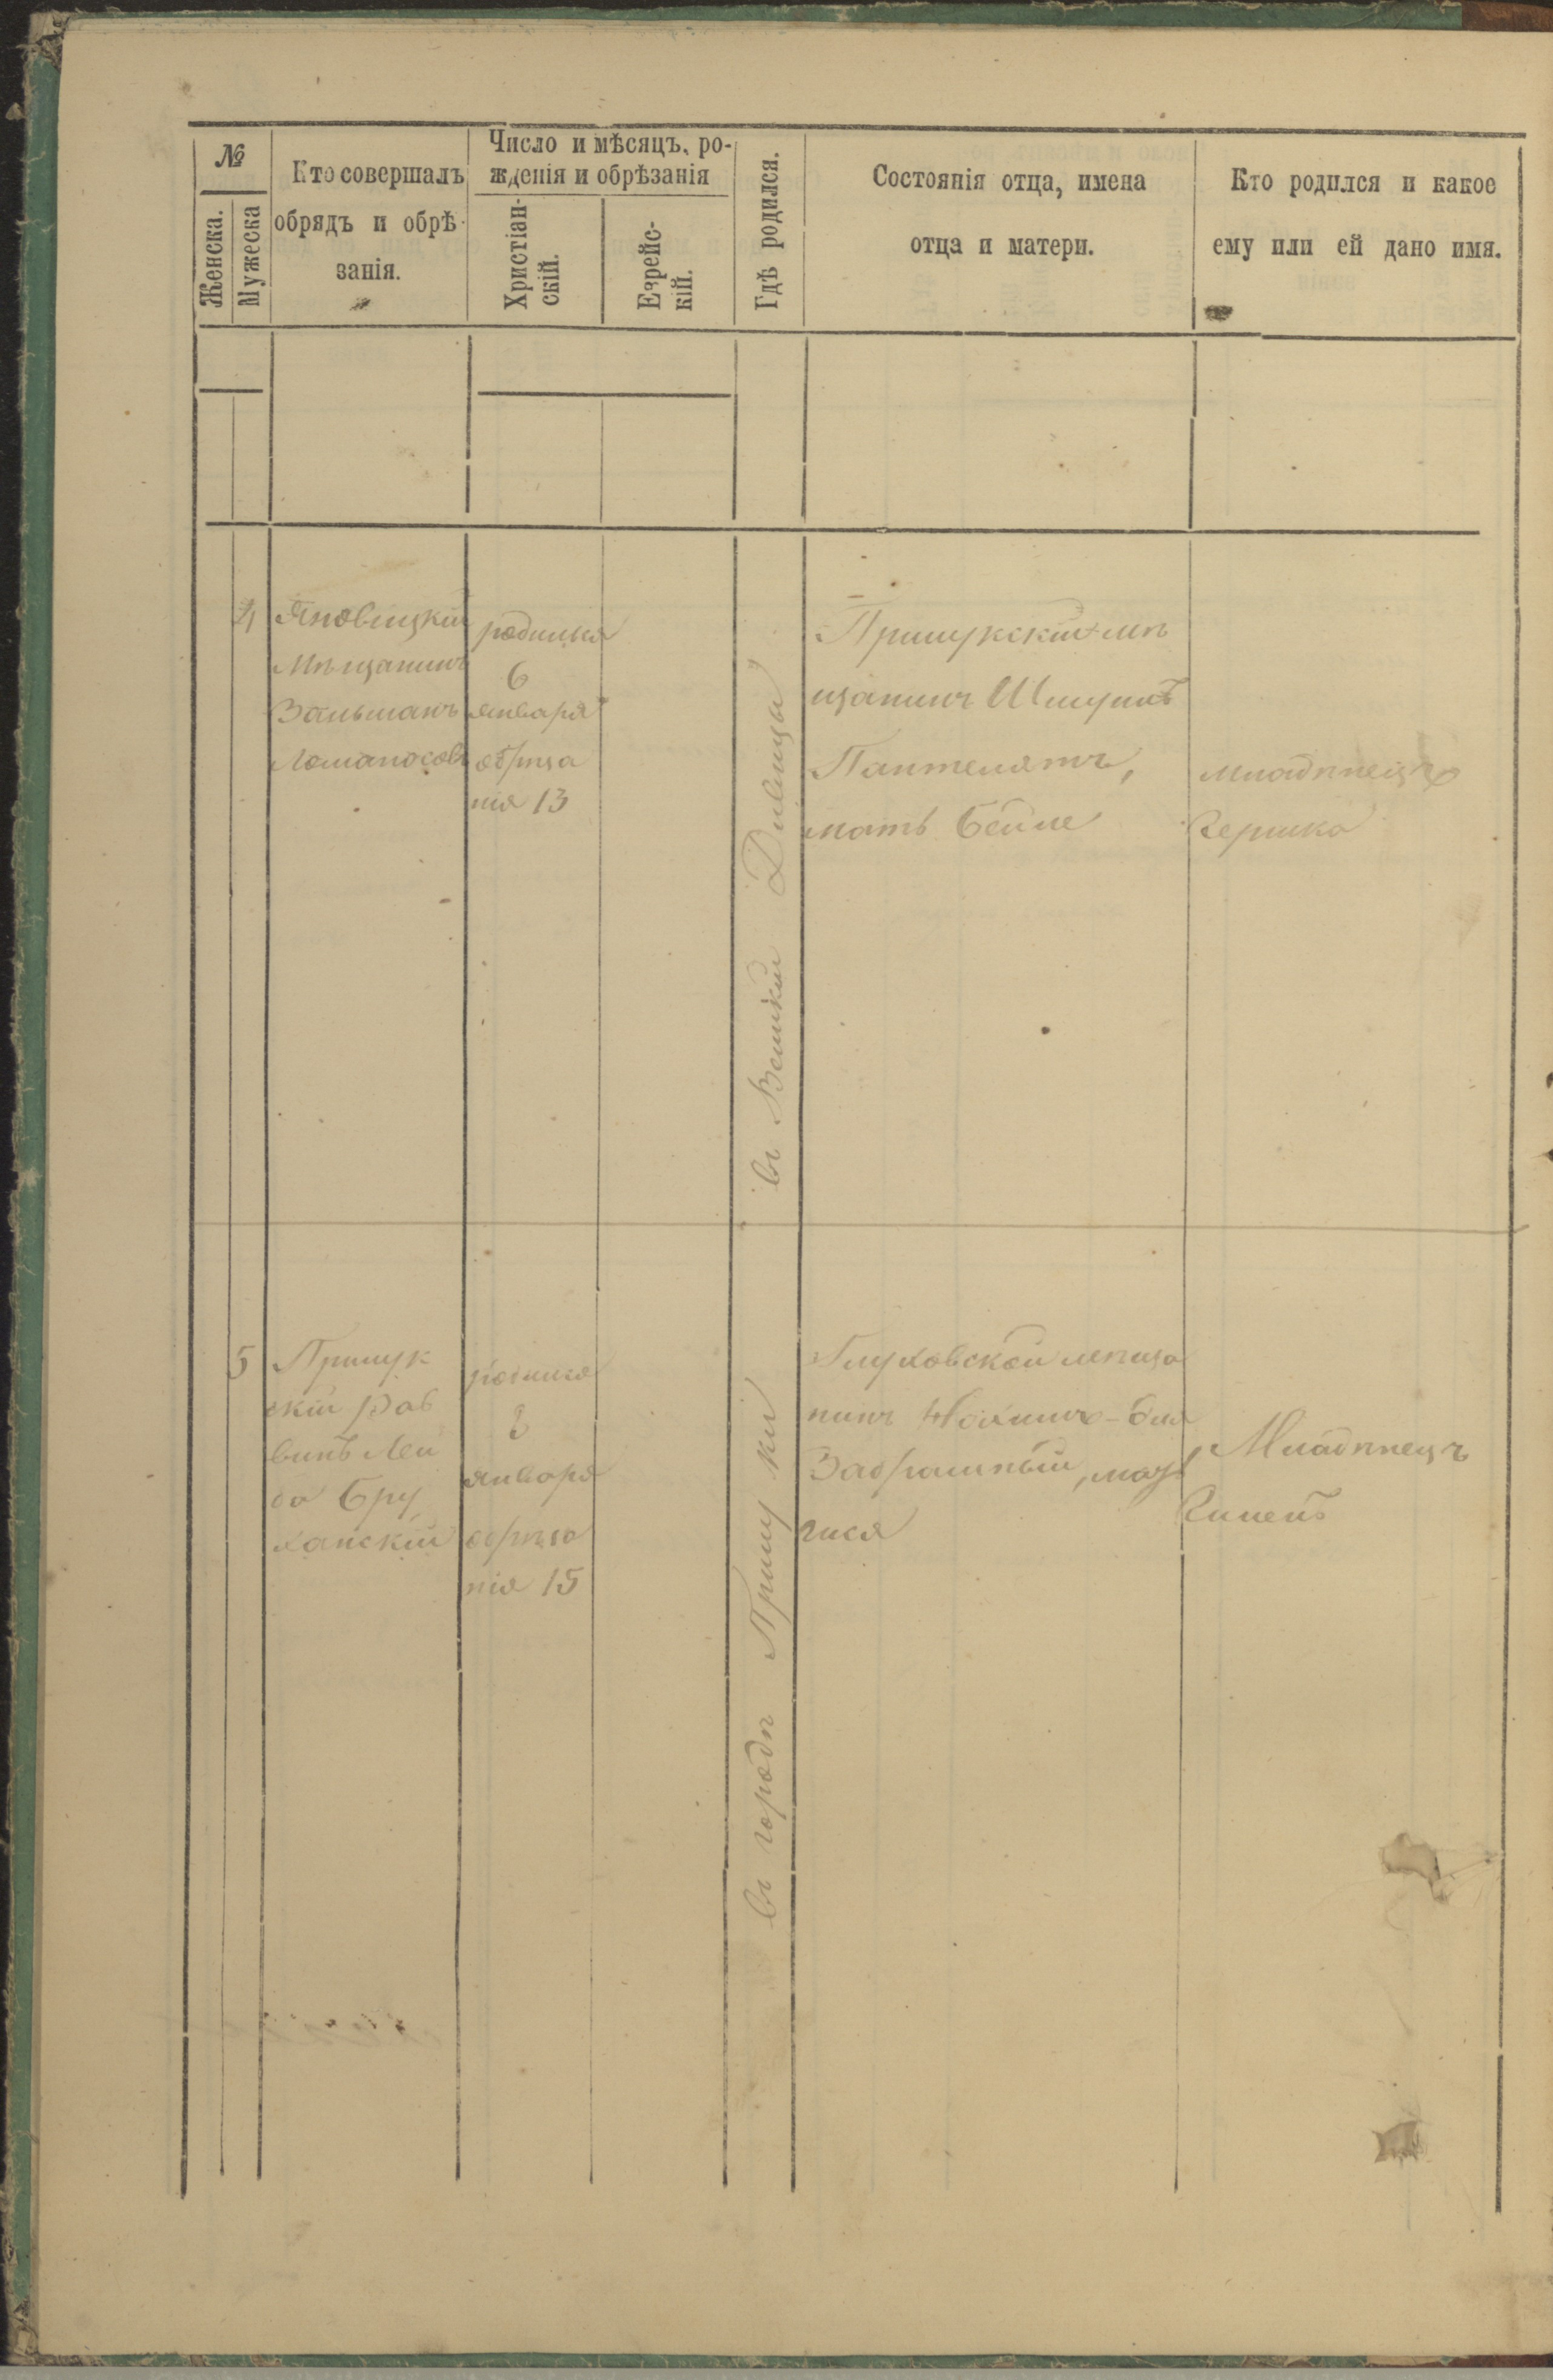 №
Женска.
Мужеска
Кто совершалъ
обрядъ и обрѣ-
занія.
Число и мѣсяцъ, ро-
жденія и обрѣзанія
Христіан-
скій.
Езрейс-
кій.
Гдѣ родился.
Состоянія отца, имена
отца и матери.
Кто родился и какое
ему или ей дано имя.
4
Яновицкій
мѣщанинъ
Зальманъ
Ломаносовъ
родился
6
января
обрѣза
нія 13
въ Велики Дивицы
Прилукскій мѣ
щанинъ Шмуилъ
Пантелятъ,
мать Бейле
младѣнецъ
Гершко
5
Прилук
скій Рав
винъ Лей
ба Бру
ханскій
родился
8
января
обрѣза
нія 15
въ городѣ Прилуки
Глуховской мѣща
нинъ Нохимъ-Бер
Забрашный, мать
Гися
Младѣнецъ